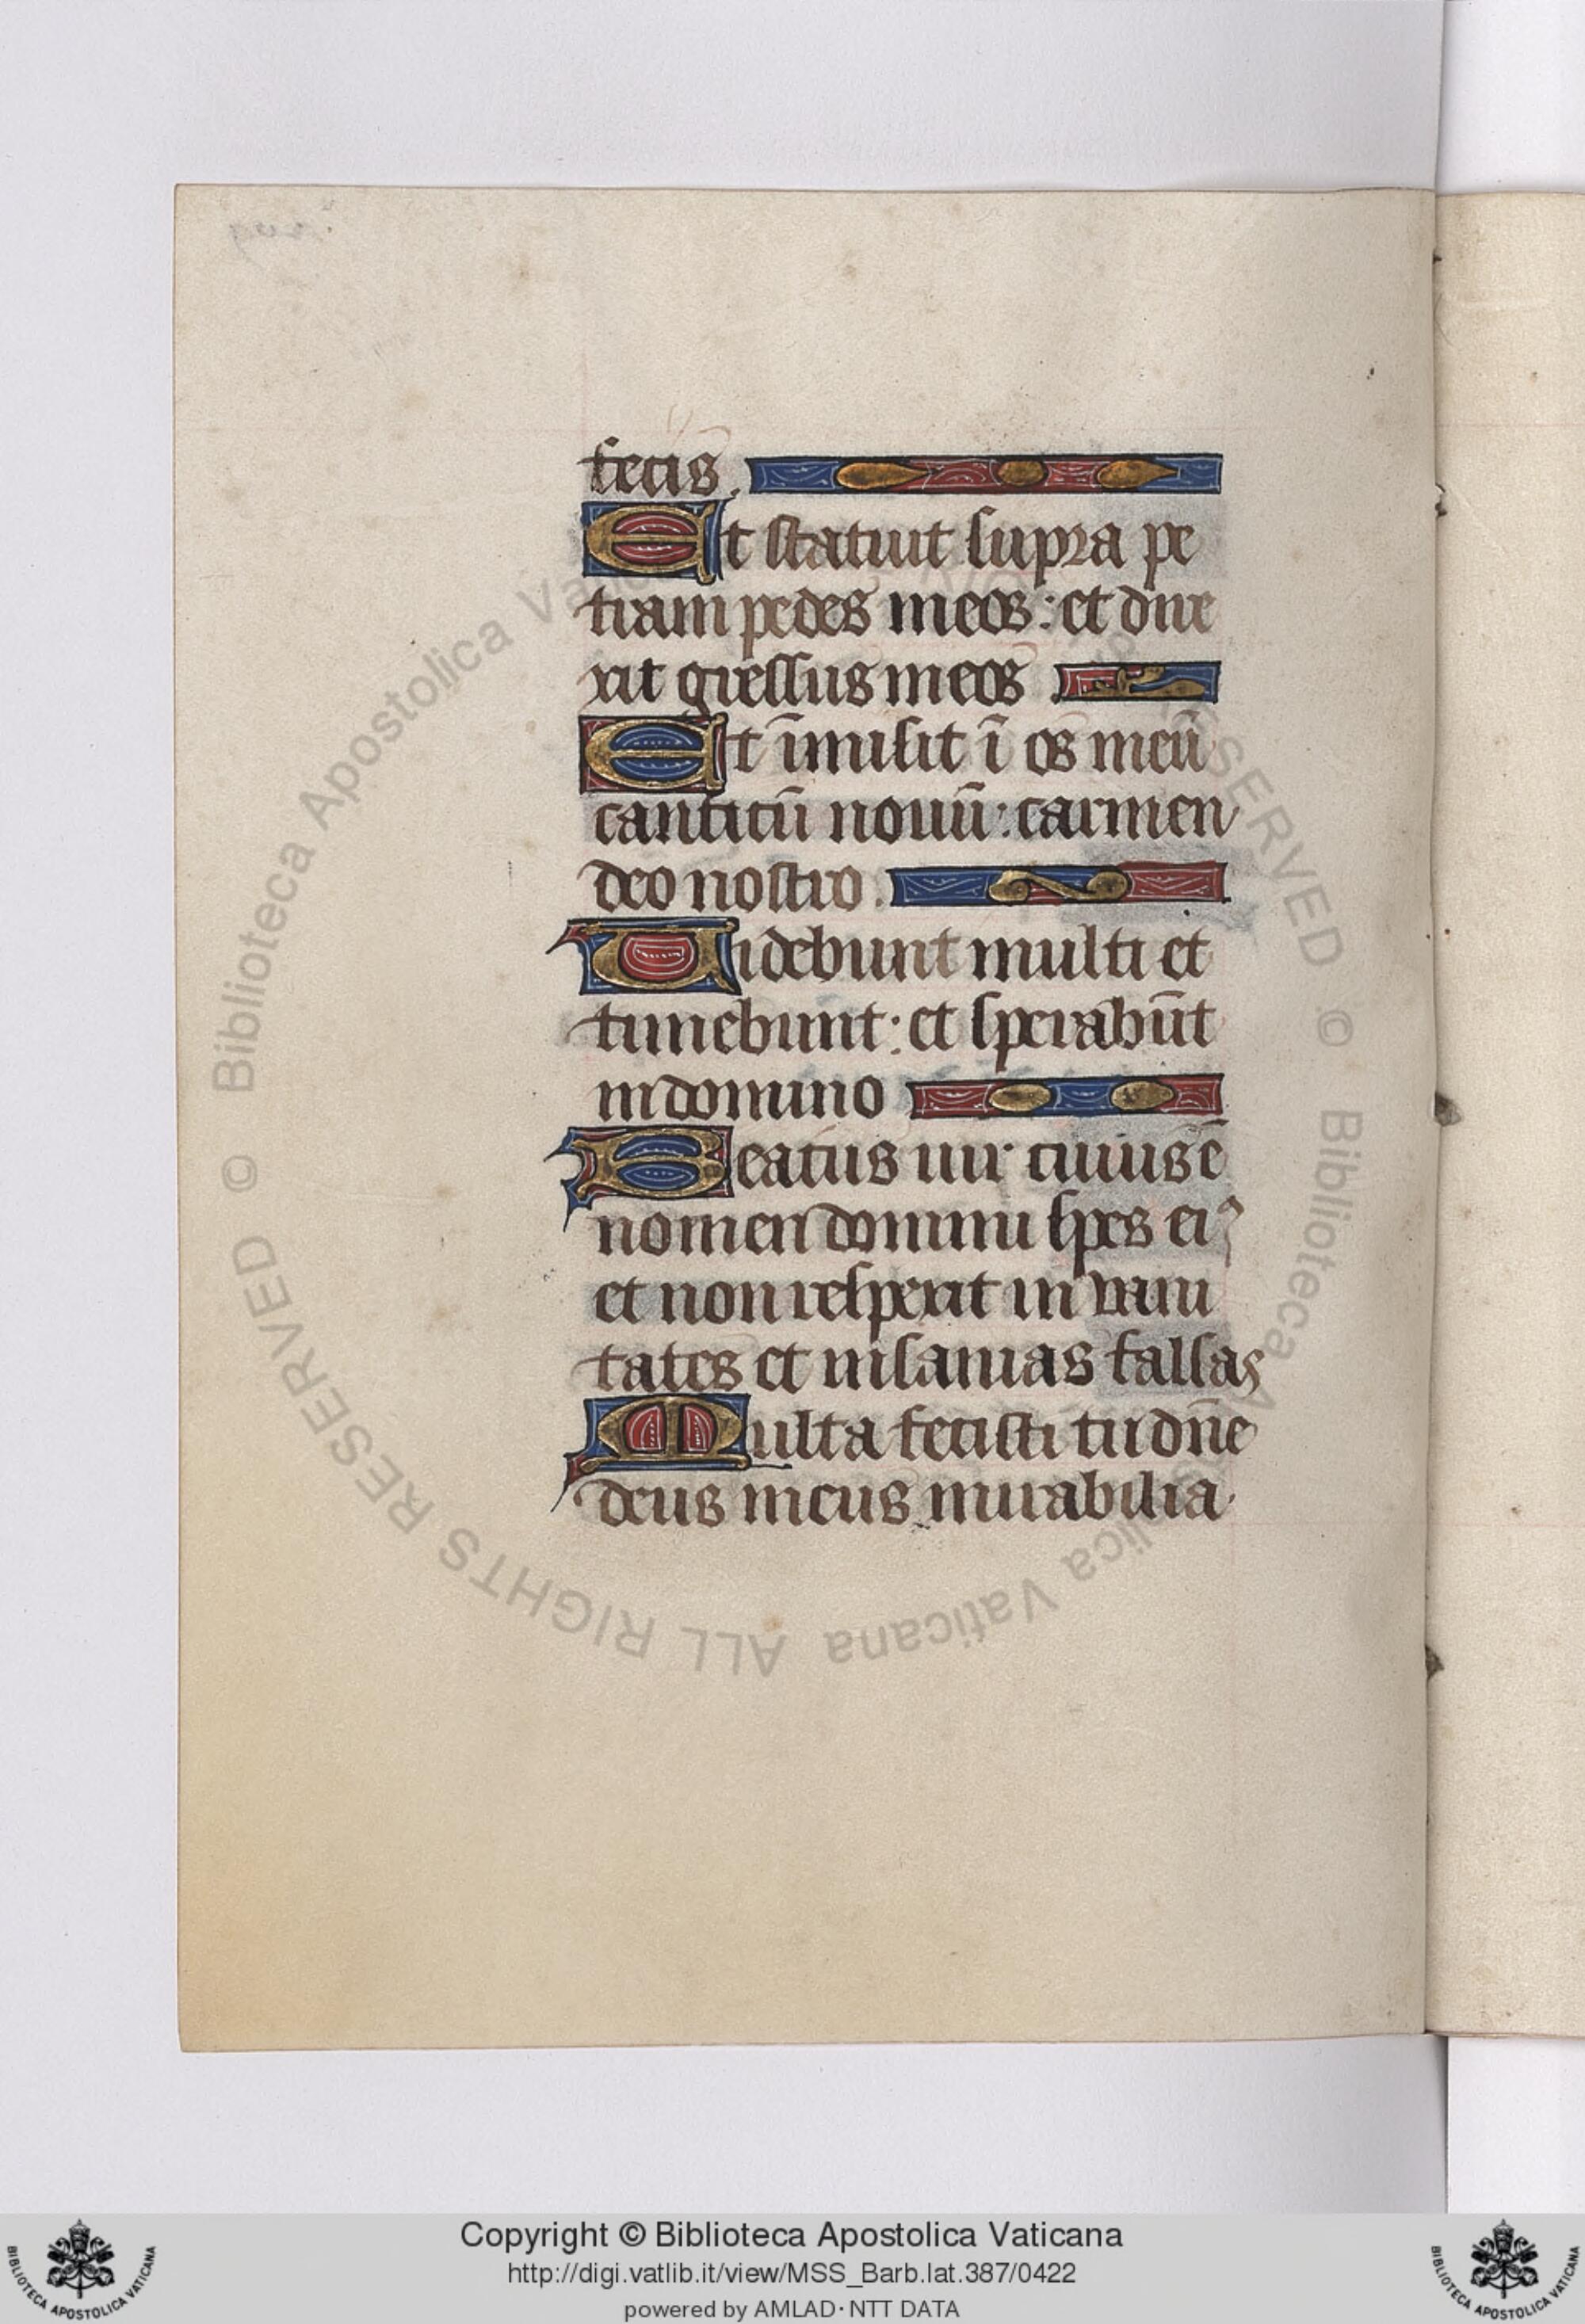 fecis.
Et statuit supra pe
tram pedes meos: et dire
xit gressus meos
Et īmisit ī os meū
canticū nouū: carmen
deo nostro.
Uidebunt multi et
timebunt: et sperabūt
in domino
Beatus uir cuius ē
nomen domini spes eiꝰ
et non respexit in uani
tates et insanias falsas
Multa fecisti tu dn̄e
deus meus mirabilia.
© Biblioteca Apostolica Vaticana ALL RIGHTS RESERVED © Biblioteca Apostolica Vaticana ALL RIGHTS RESERVED
Copyright © Biblioteca Apostolica Vaticana
http://digi.vatlib.it/view/MSS_Barb.lat.387/0422
powered by AMLAD·NTT DATA
BIBLIOTECA APOSTOLICA VATICANA
BIBLIOTECA APOSTOLICA VATICANA